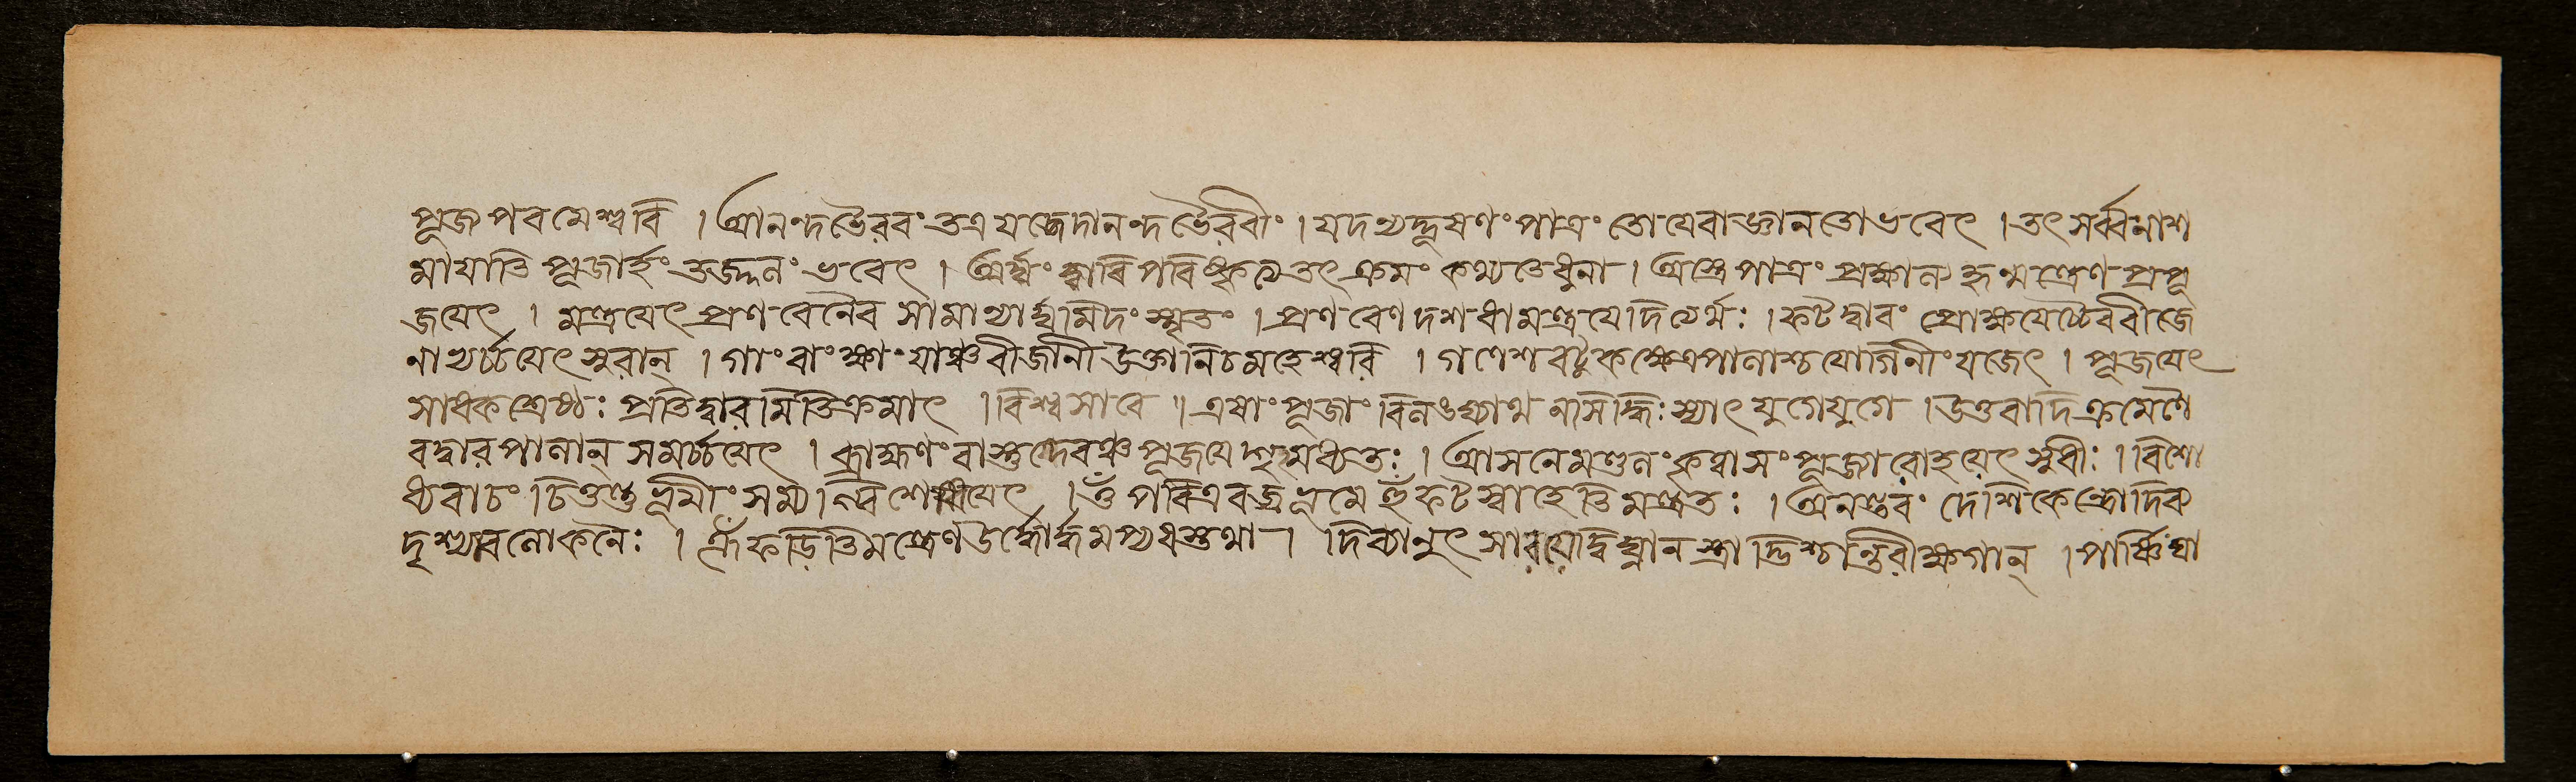 পূজপরমেশ্বরি । আনন্দভৈরবং তত্র যজেদানন্দভৈরবীং । যদগ্যদ্দূষণং পাত্রং তোযেবাজ্ঞানতোভবেৎ । তৎ সর্ব্বংনাশ
মাযাতি পূজার্হং তজ্জলং ভবেৎ । অর্ঘ্যং দ্বারি পরিষ্কৃত্য তৎ ক্রমং কথ্যতেধুনা । অস্ত্রে পাত্রং প্রক্ষাল্য হৃন্মন্ত্রেণ প্রপূ
জযেৎ । মন্ত্রযেৎ প্রণবেনৈব সামান্যার্ঘ্যমিদং স্মৃতং । প্রণবেণ দশধামন্ত্রযেদিত্যর্থঃ । ফট দ্বারং প্রোক্ষযেচ্চৈববীজে
নান্যর্চ্চযেৎ সুরান্ । গাং বাং ক্ষাং যাঞ্চবীজানী উক্তানিচমহেশ্বরি । গণেশবটুকক্ষেত্রপালাশ্চযোগিনীং যজেৎ । পূজযেৎ
সাধকশ্রেষ্ঠঃ প্রতিদ্বারমিতিক্রমাৎ । বিশ্বসারে ॥ এষাং পূজাং বিলঙ্ঘ্যাথ নসিদ্ধিঃ স্যাৎ যুগেযুগে । উত্তরাদিক্রমেণৈ
বদ্বারপালান্ সমর্চ্চযেৎ । ব্রাহ্মণং বাস্তুদেবঞ্চ পূজযেদ্গৃহমধ্যতঃ । আসনেমণ্ডলং কৃত্বাসং পূজ্যারোহযেৎ সুধীঃ । বিশো
ধ্যবাচং চিত্তন্তু ভূমীং সম্যগ্বিশোধযেৎ । ওঁ পবিত্রবজ্রভূমে হুঁ ফট স্বাহেতিমন্ত্রতঃ । অনন্তরং দেশিকেন্দ্রোদিব্য
দৃশ্যাবলোকনৈঃ । ঐঁ ফডিতিমন্ত্রেণ উর্দ্ধোর্দ্ধমপ্যধস্তথা । দিব্যানুৎ সারযেদ্বিঘ্নানস্ত্রাদ্ভিশ্চান্তিরীক্ষগান্ । পার্ষ্ণিঘা